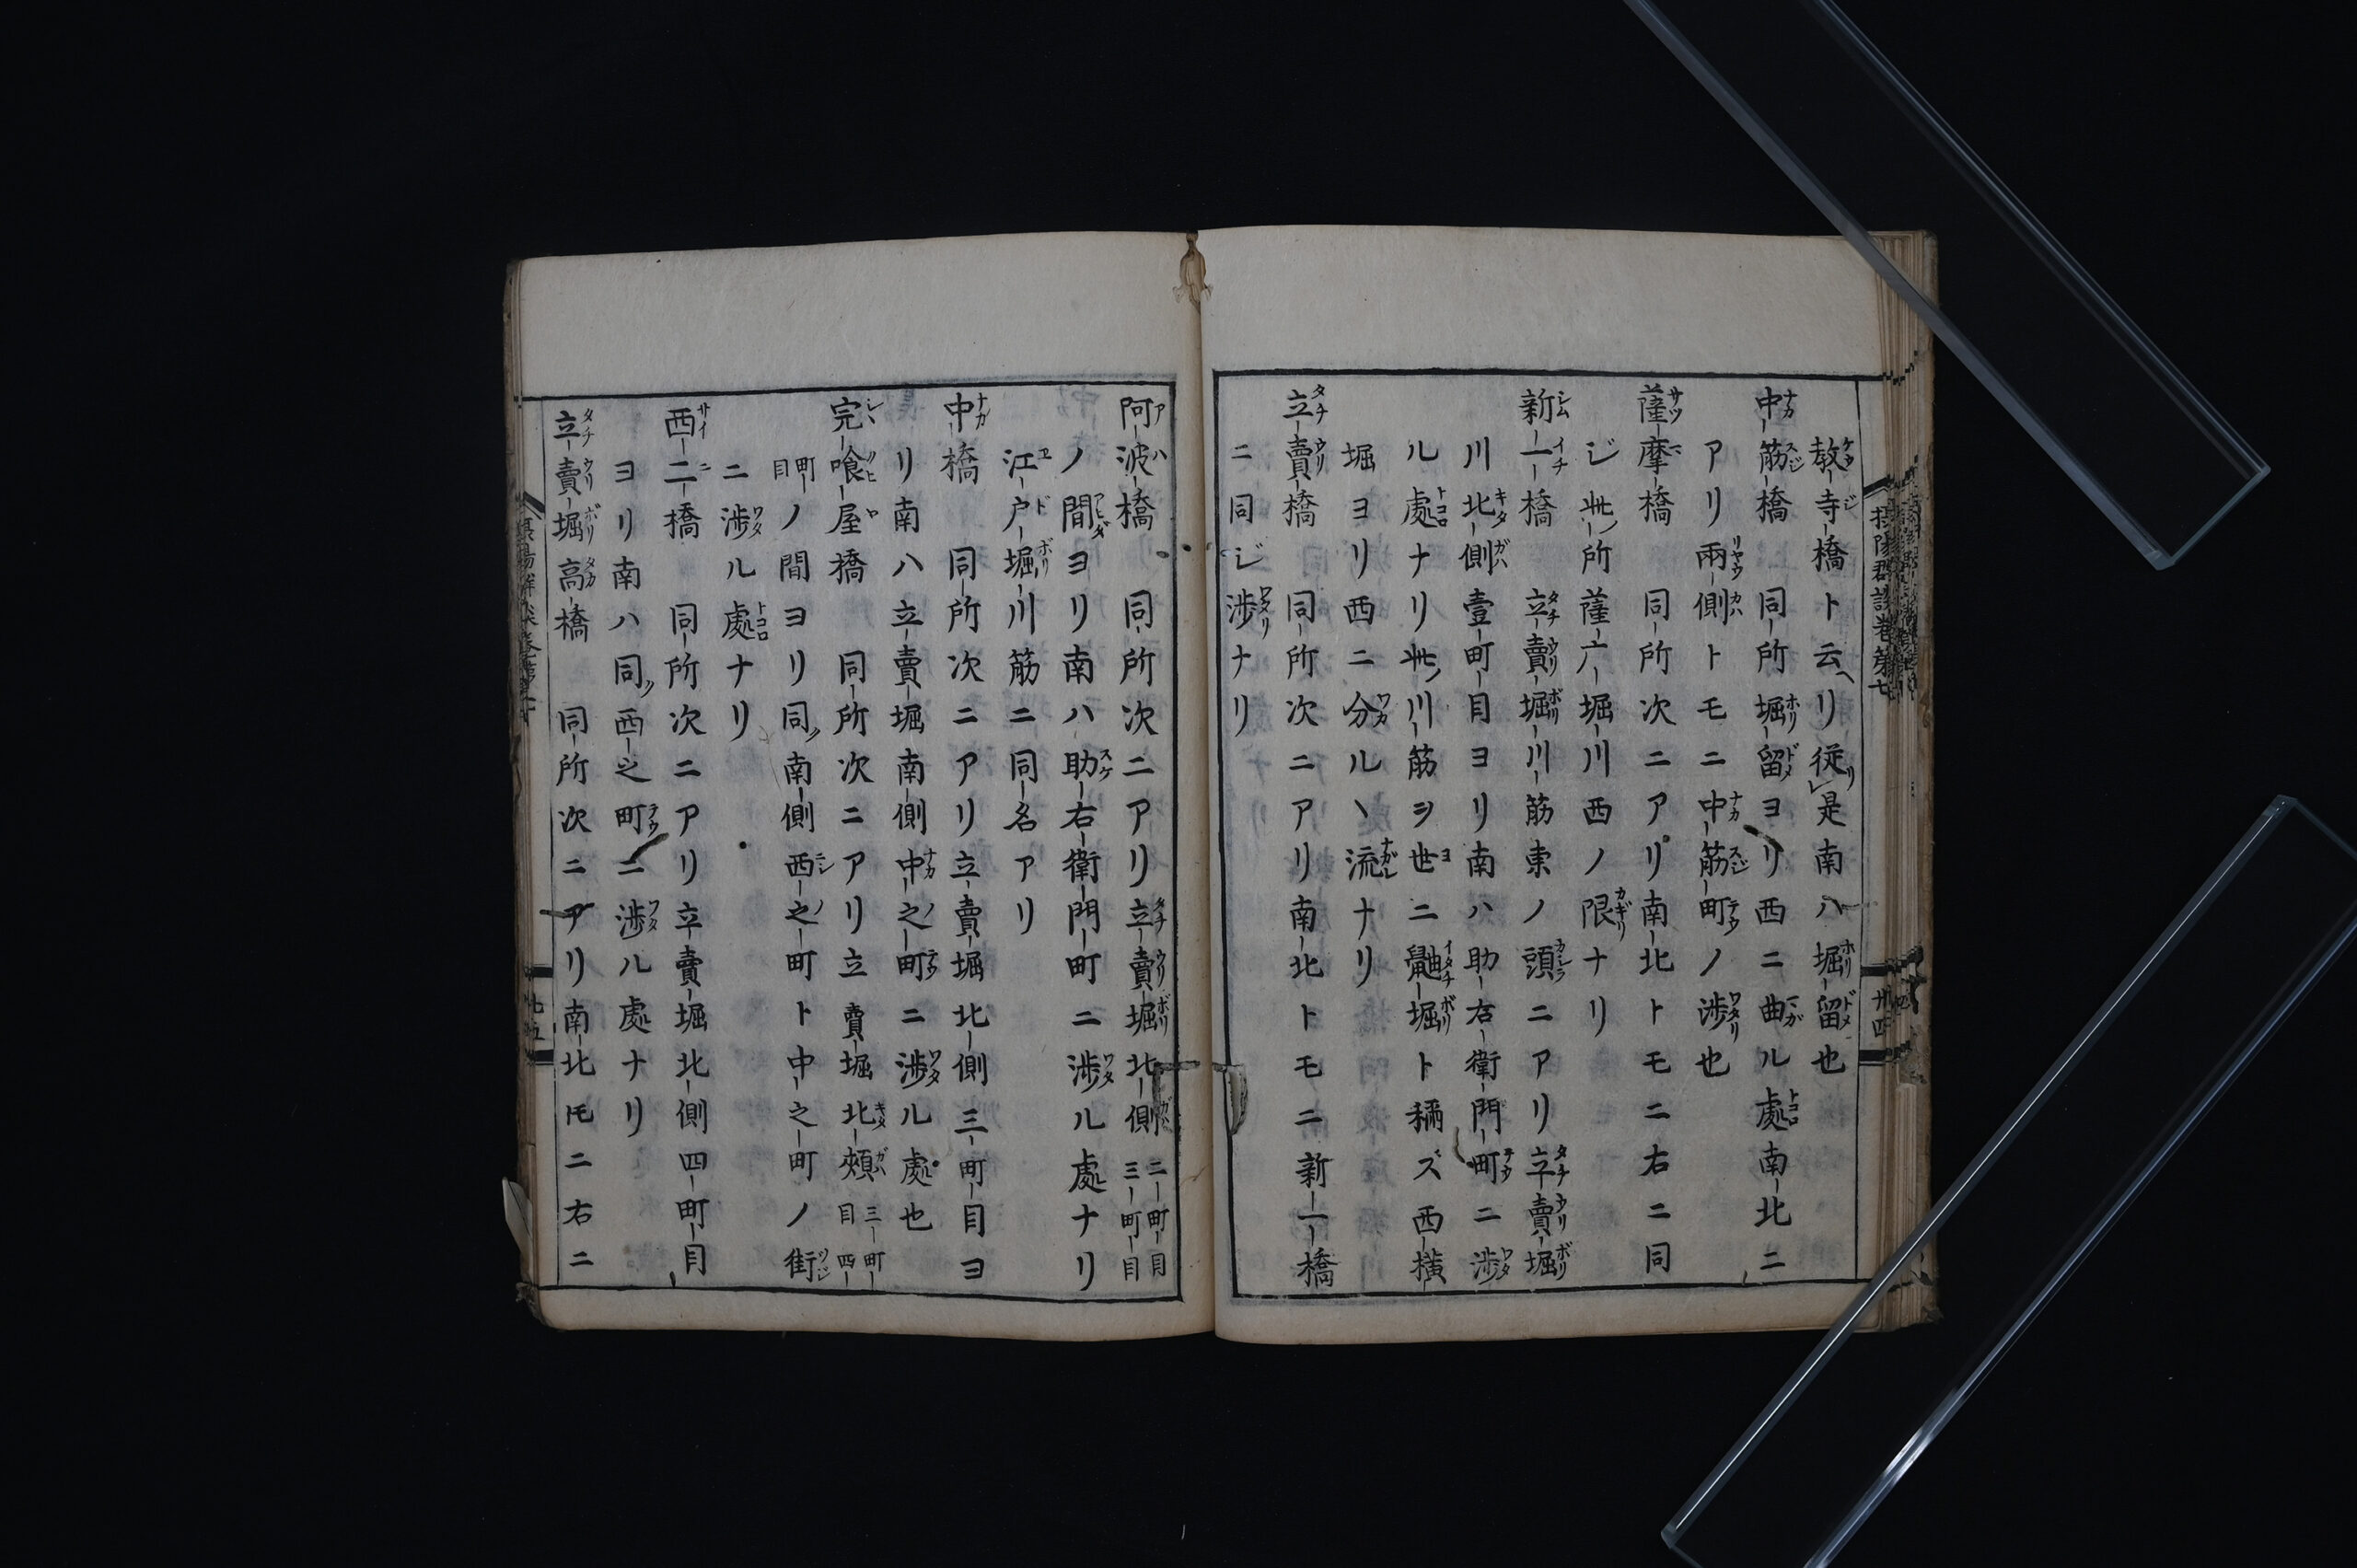 敎寺橋ト云リ從是南ハ堀留也
中筋橋 同所堀留ヨリ西ニ曲ル處南北ニ
アリ兩側トモニ中筋町ノ渉也
薩摩橋 同所次ニアリ南北トモニ右ニ同
ジ此所薩广堀川西ノ限ナリ
新一橋 立賣堀川筋東ノ頭ニアリ立賣堀
川北側壹町目ヨリ南ハ助右衛門町ニ渉
ル處ナリ此川筋ヲ世ニ鼬堀ト稱ズ西橫
堀ヨリ西ニ分ルヽ流ナリ
立賣橋 同所次ニアリ南北トモニ新一橋
ニ同ジ渉ナリ
阿波橋 同所次ニアリ立賣堀北側二町目三町目
ノ間ヨリ南ハ助右衛門町ニ渉ル處ナリ
江戸堀川筋ニ同名アリ
中橋 同所次ニアリ立賣堀北側三町目ヨ
リ南ハ立賣堀南側中之町ニ渉ル處也
完喰屋橋 同所次ニアリ立賣堀北頰三町目四
町目ノ間ヨリ同南側西之町ト中之町ノ街
ニ渉ル處ナリ
西二橋 同所次ニアリ立賣堀北側四町目
ヨリ南ハ同西之町ニ渉ル處ナリ
立賣堀高橋 同所次ニアリ南北トモニ右ニ
攝陽群談卷第七
卅四